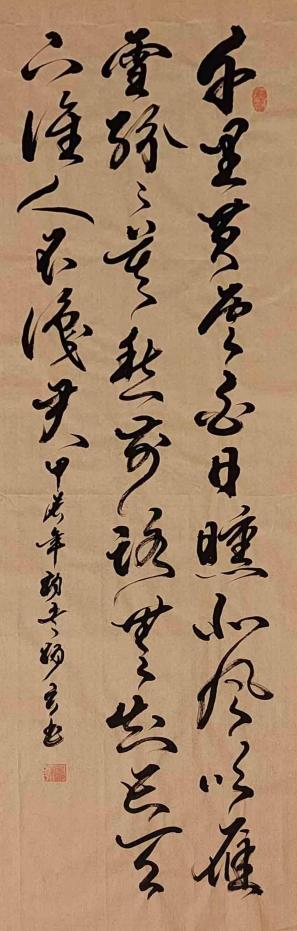 千里黄雲白日曛北風吹雁
雪紛〻莫愁前路無知己天
下誰人不識君 甲辰年 书